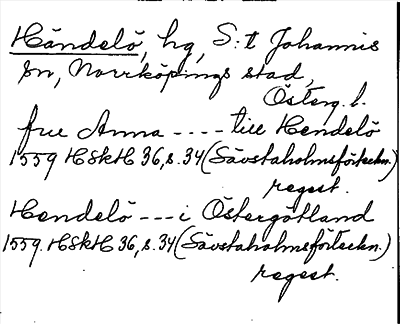 Händelö, hg, S:t Johannis
sn, Norrköpings stad,
Österg. l.
fru Anna ---- till Hendelö
1559 HSkH 36, s. 34 (Sävstaholmsförteckn.)
regest.
Hendelö --- i Östergötland
1559. HSkH 36, s. 34 (Sävstaholmsförteckn.)
regest.